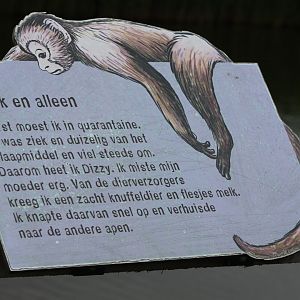 k en alleen
st moest ik in quarantaine.
was ziek en duizelig van het
laapmiddel en viel steeds om.
Daarom heet ik Dizzy. Ik miste mijn
moeder erg. Van de dierverzorgers
kreeg ik een zacht knuffeldier en flesjes melk.
Ik knapte daarvan snel op en verhuisde
naar de andere apen.